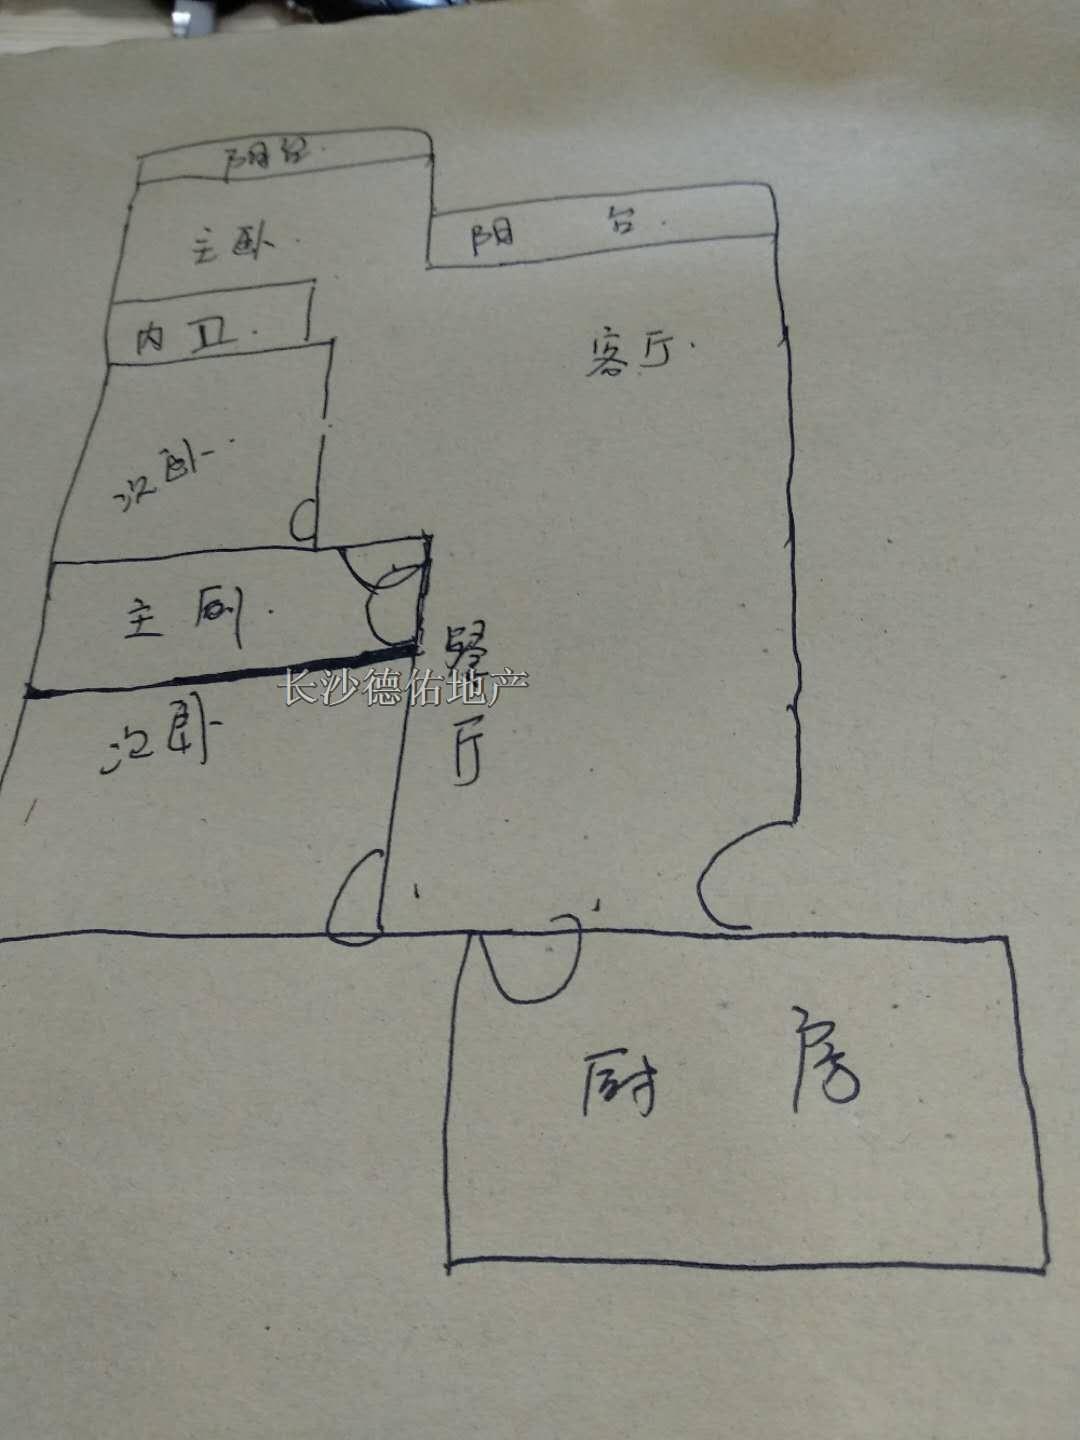 阳台
主卧
阳台
内卫
客厅
次卧
主厕
餐厅
长沙德佑地产
次卧
厨房